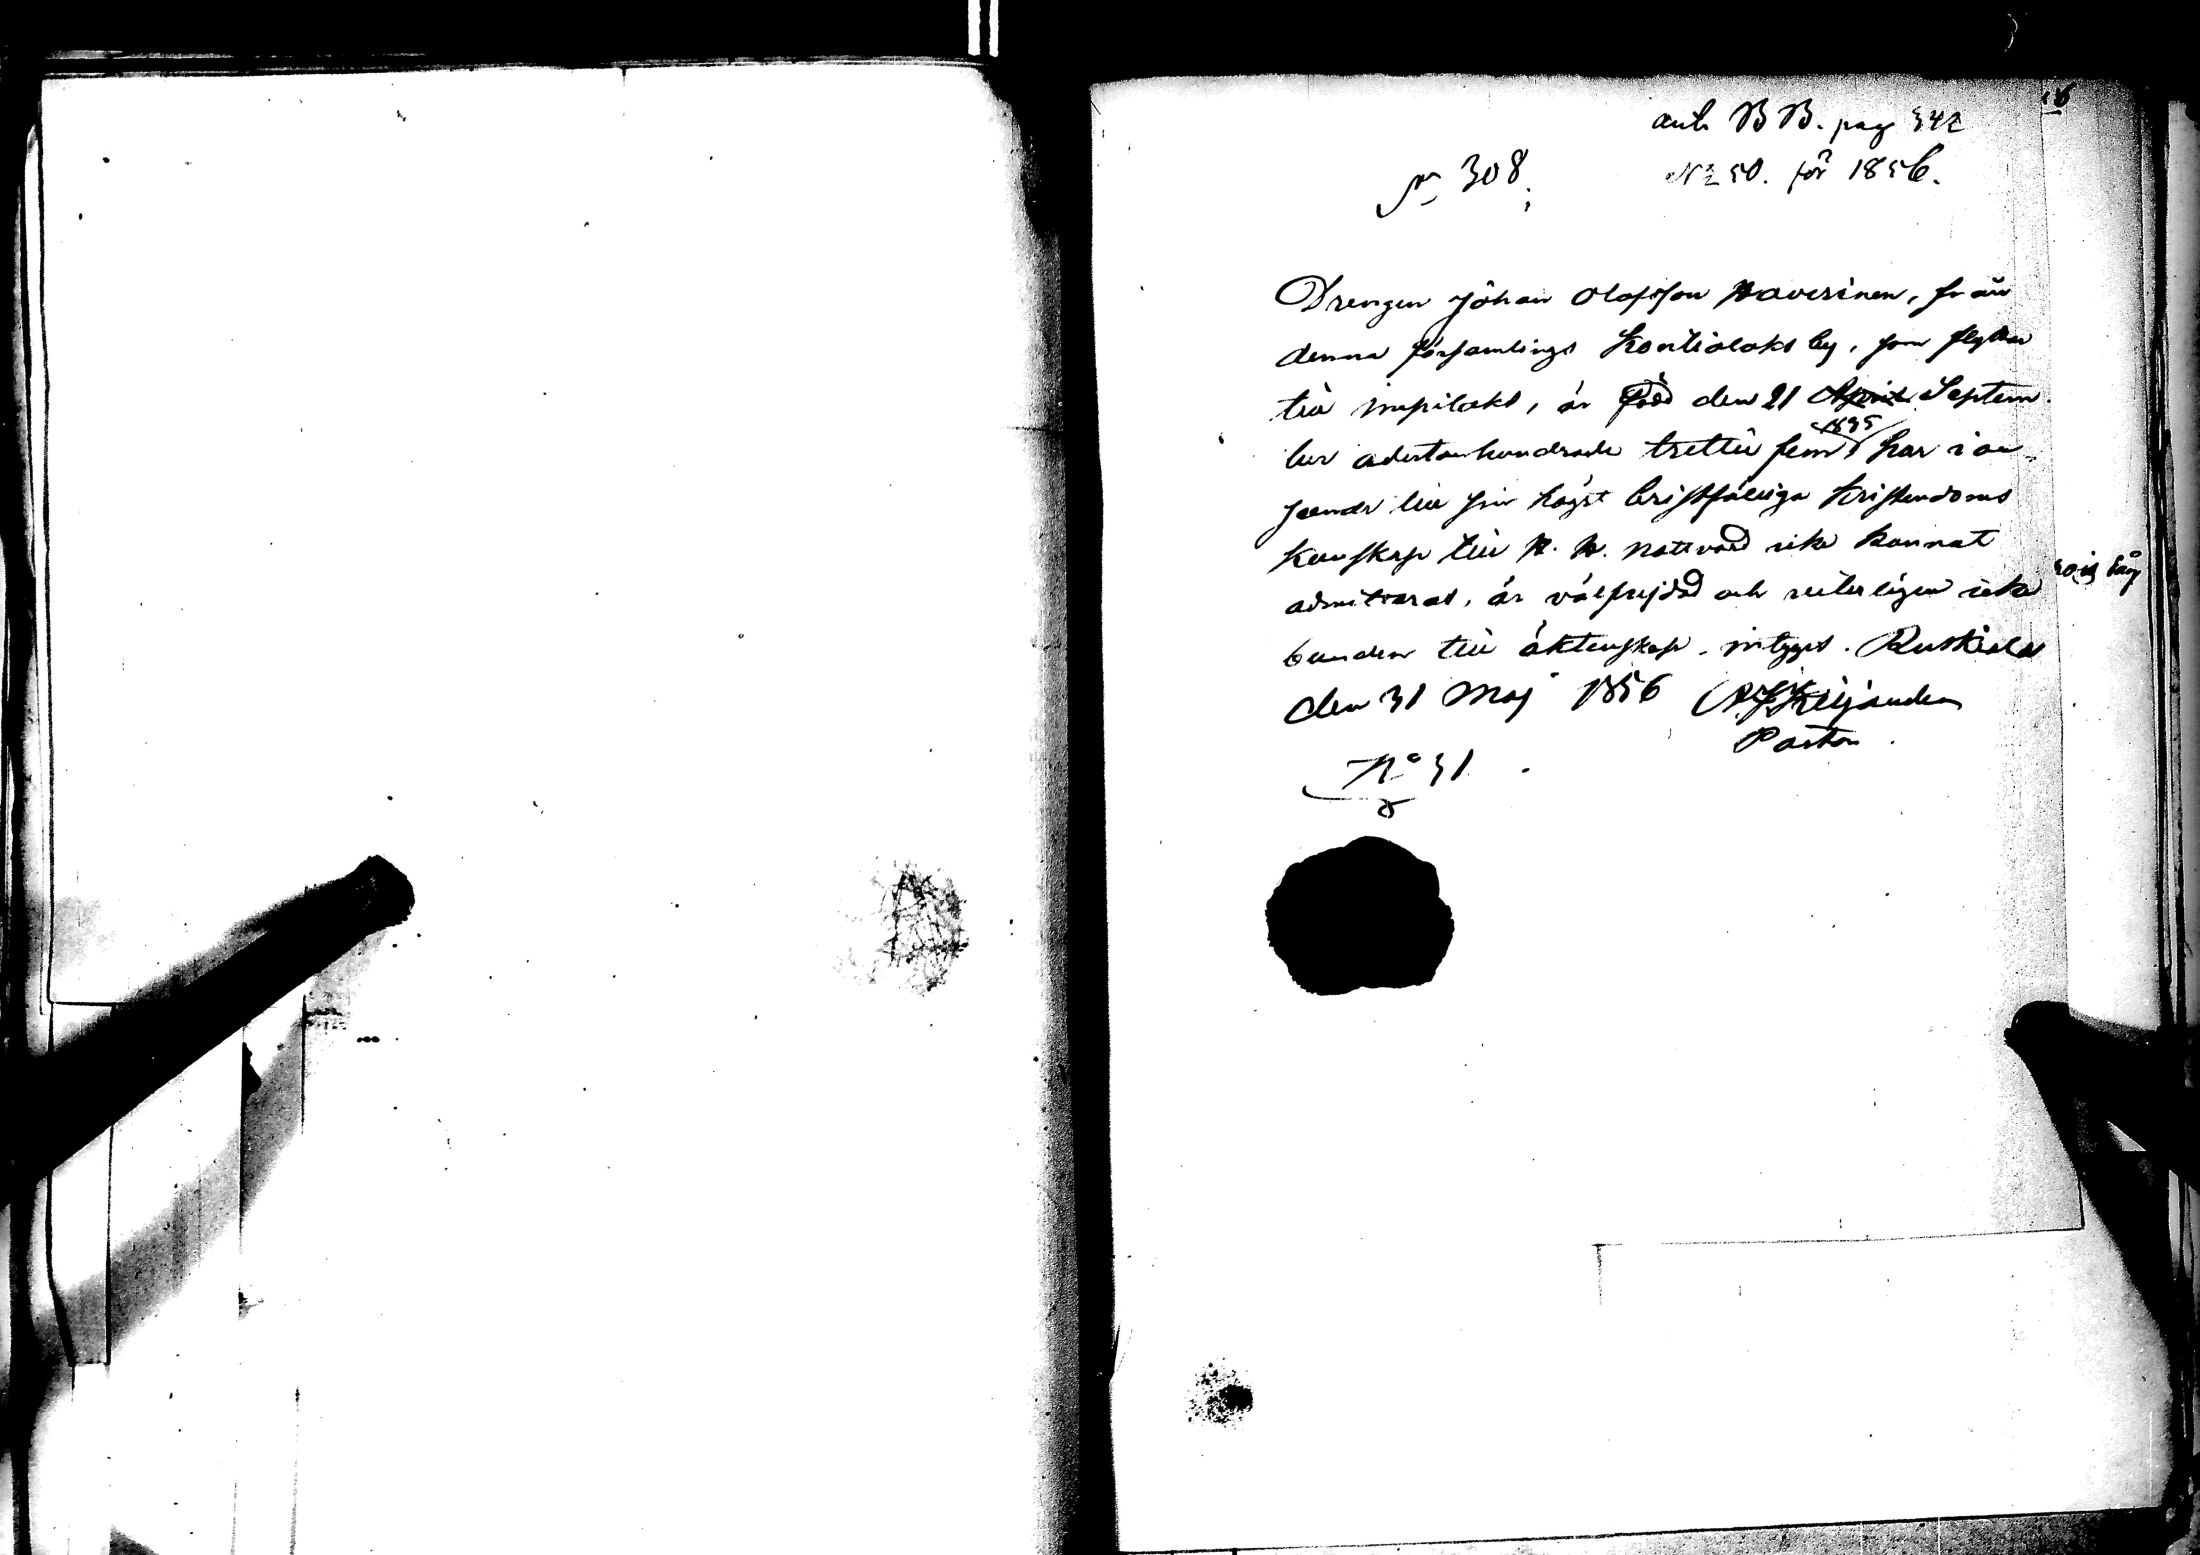 ant. BB. pag 342
No 50. för 1856.
No 308.
Drengen Johan Olofsson Haverinen, från
denna församlings Kontiolaks by, som flyttar
till Impilaks, är född den 21 April Septem
ber adertonhundrade trettio fem 1835, har i an
seende till sin högst bristfälliga Kristendoms
kunskap till H. H. nattvard icke kunnat
admitteras, är välfrejdad och veterligen icke
bunden till äktenskap, intygas. Ruskiala
den 31 Maj 1856
Pastor.
No 31